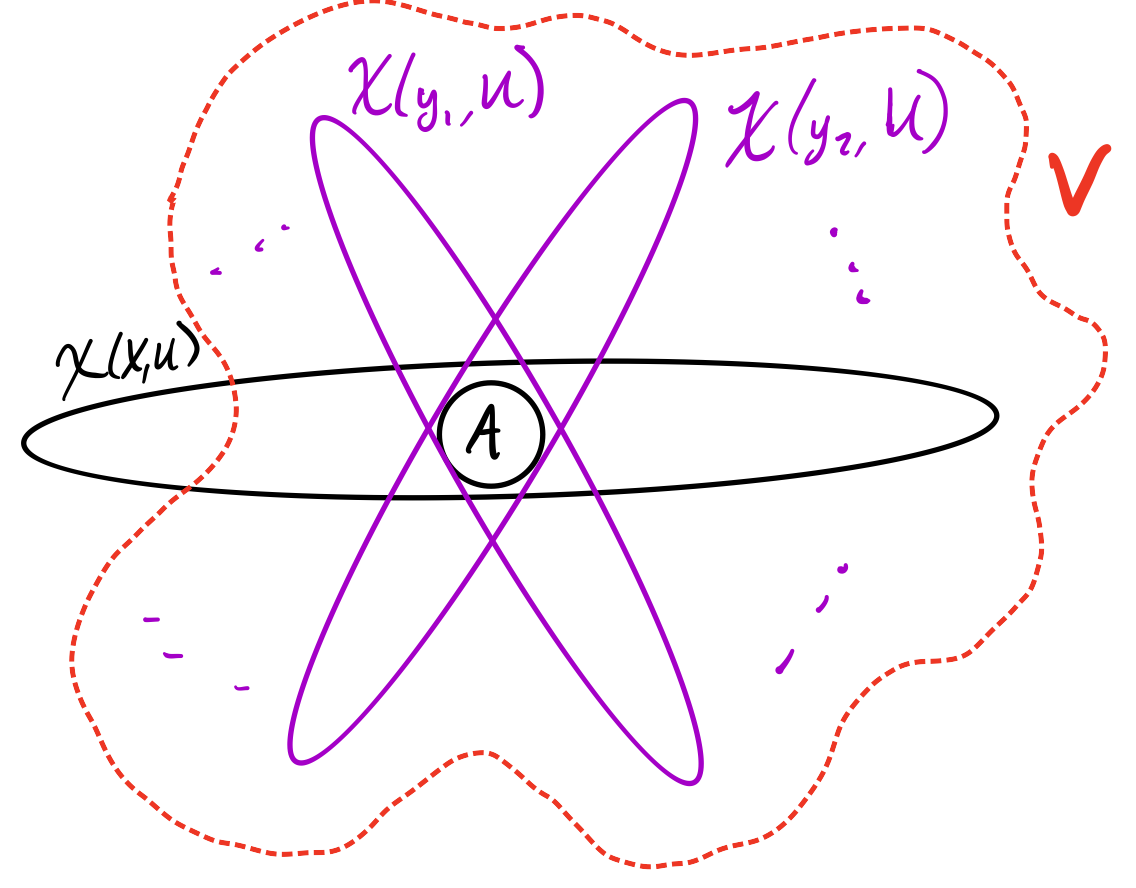 χ(y₁, U)
χ(y₂, U)
V
χ(x, U)
A